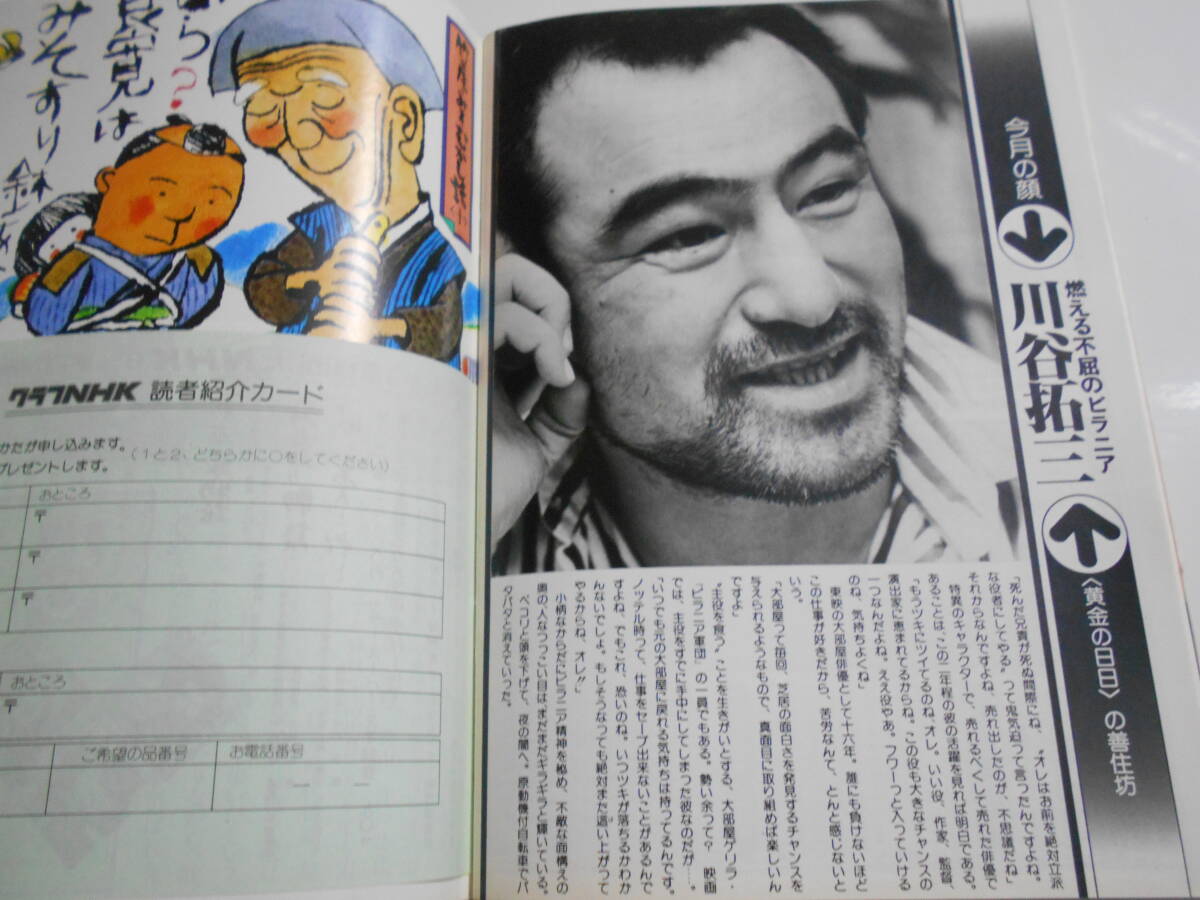 今月の顔
燃える不屈のピラニア
川谷拓三
〈黄金の日日〉の善住坊
「死んだ兄貴が死ぬ間際にね、〝オレはお前を絶対立派
な役者にしてやる〟って鬼気迫って言ったんですよね。
それからなんですよね、売れ出したのが、不思議だね」
特異のキャラクターで、売れるべくして売れた俳優で
あることは、この二年程の彼の活躍を見れば明白である。
「もうツキにツイてるのね、オレ。いい役、作家、監督、
演出家に恵まれてるからね。この役も大きなチャンスの
一つなんだよね。ええ役やあ。フワーっと入っていける
のね、気持ちよくね」
東映の大部屋俳優として十六年。誰にも負けないほど
この仕事が好きだから、苦労なんて、とんと感じないと
いう。
「大部屋って毎回、芝居の面白さを発見するチャンスを
与えられるようなもので、真面目に取り組めば楽しいん
ですよ」
〝主役を食う〟ことを生きがいとする、大部屋ゲリラ・
『ピラニア軍団』の一員でもある。勢い余って? 映画
では、主役をすでに手中にしてしまった彼なのだが…。
「いつでも元の大部屋に戻れる気持ちは持ってるんです。
ノッテル時って、仕事をセーブ出来ないことがあるんで
すよね、でもこれ、恐いのね。いつツキが落ちるかわか
んないでしょ。もしそうなっても絶対また這い上がって
やるからね、オレ!!」
小柄なからだにピラニア精神を秘め、不敵な面構えの
奥の、人なつっこい目は、まだまだギラギラと輝いている。
ペコリと頭を下げて、夜の闇へ。原動機付自転車でパ
タパタと消えていった。
ら?
良寛は
みそすり
グラフNHK 読者紹介カード
かたが申し込みます。
プレゼントします。
(1と2、どちらかに○をしてください)
おところ
〒
〒
〒
おところ
〒
ご希望の品番号
お電話番号
― ―